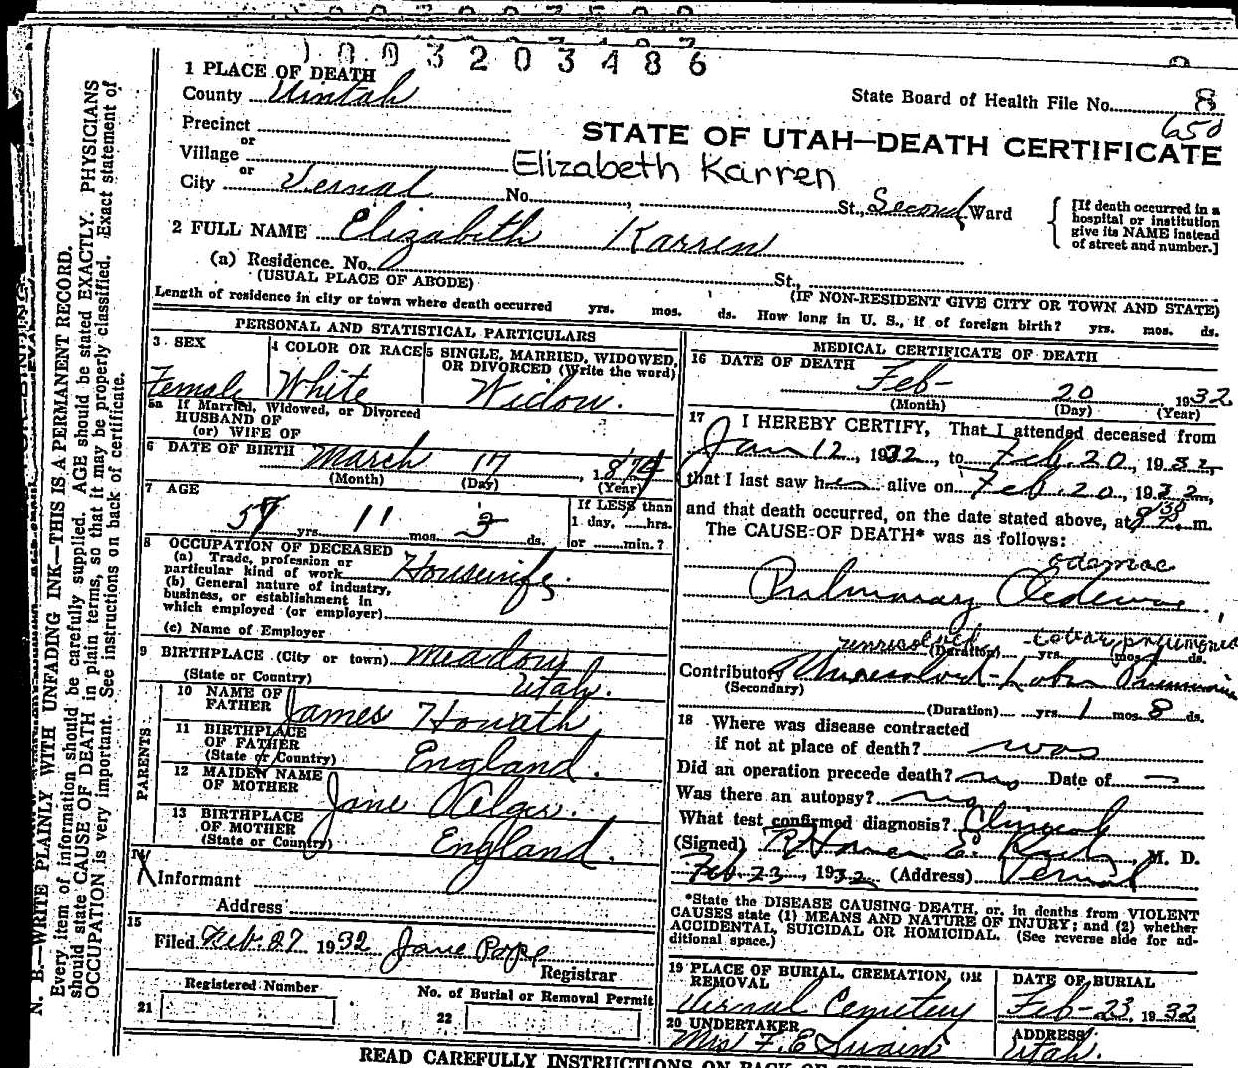 1003203486
1 PLACE OF DEATH
County Uintah
State Board of Health File No. 8
650
Precinct
or
Village
STATE OF UTAH—DEATH CERTIFICATE
Elizabeth Karren
or
City Vernal No. St., Second Ward
[If death occurred in a hospital or institution give its NAME instead of street and number.]
2 FULL NAME Elizabeth Karren
(a) Residence. No. St.,
(USUAL PLACE OF ABODE) (IF NON-RESIDENT GIVE CITY OR TOWN AND STATE)
Length of residence in city or town where death occurred yrs. mos. ds. How long in U. S., if of foreign birth? yrs. mos. ds.
PERSONAL AND STATISTICAL PARTICULARS
3 SEX
Female
4 COLOR OR RACE
White
5 SINGLE, MARRIED, WIDOWED, OR DIVORCED (Write the word)
Widow.
5a If Married, Widowed, or Divorced
HUSBAND OF
(or) WIFE OF
6 DATE OF BIRTH March 17, 1874
(Month) (Day) (Year)
7 AGE
57 yrs. 11 mos. 3 ds.
If LESS than
1 day, hrs.
or min.?
8 OCCUPATION OF DECEASED
(a) Trade, profession or
particular kind of work Housewife.
(b) General nature of industry,
business, or establishment in
which employed (or employer)
(c) Name of Employer
9 BIRTHPLACE (City or town) Meadow
(State or Country) Utah.
PARENTS
10 NAME OF
FATHER James Howath
11 BIRTHPLACE
OF FATHER
(State or Country) England.
12 MAIDEN NAME
OF MOTHER Jane
13 BIRTHPLACE
OF MOTHER
(State or Country) England.
14
X Informant
Address
15
Filed Feb. 27 1932 Jane Pope
Registrar
Registered Number
21
No. of Burial or Removal Permit
22
MEDICAL CERTIFICATE OF DEATH
16 DATE OF DEATH
Feb- 20 1932
(Month) (Day) (Year)
17 I HEREBY CERTIFY, That I attended deceased from
Jan 12, 1932, to Feb. 20, 1932,
that I last saw her alive on Feb. 20, 1932,
and that death occurred, on the date stated above, at m.
The CAUSE OF DEATH* was as follows:
edemae
Pulmonary Oedemae.
unresolved lobar pneumonia
(Duration) yrs. mos. ds.
Contributory Unresolved-Lobar Pneumonia
(Secondary)
(Duration) yrs. 1 mos. 8 ds.
18 Where was disease contracted
if not at place of death? was
Did an operation precede death? no Date of —
Was there an autopsy? no
What test confirmed diagnosis? Clinical
(Signed) Homer E. M. D.
Feb 23, 1932 (Address) Vernal
*State the DISEASE CAUSING DEATH, or, in deaths from VIOLENT
CAUSES state (1) MEANS AND NATURE OF INJURY; and (2) whether
ACCIDENTAL, SUICIDAL OR HOMICIDAL. (See reverse side for ad-
ditional space.)
19 PLACE OF BURIAL, CREMATION, OR
REMOVAL
Vernal Cemetery
DATE OF BURIAL
Feb-23, 1932
20 UNDERTAKER
Mrs F. E Swain
ADDRESS
Utah.
N. B.—WRITE PLAINLY WITH UNFADING INK—THIS IS A PERMANENT RECORD.
Every item of information should be carefully supplied. AGE should be stated EXACTLY. PHYSICIANS
should state CAUSE OF DEATH in plain terms, so that it may be properly classified. Exact statement of
OCCUPATION is very important. See instructions on back of certificate.
READ CAREFULLY INSTRUCTIONS ON BACK OF